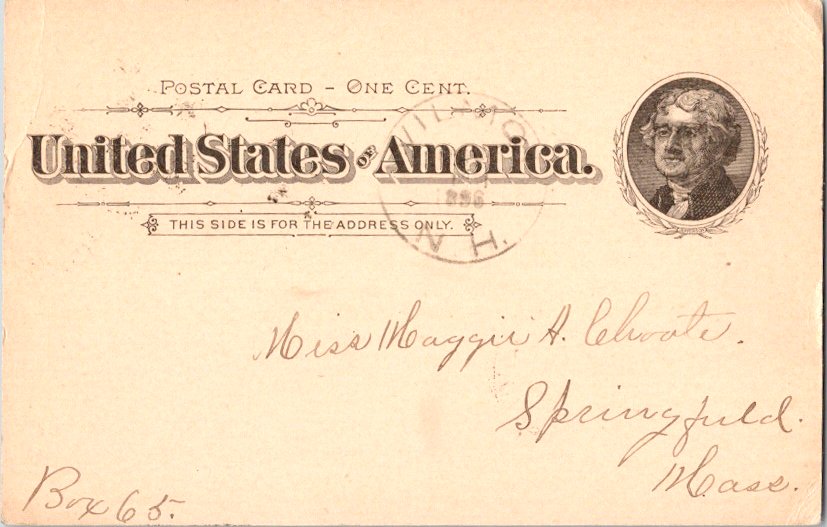 POSTAL CARD – ONE CENT.
United States OF America.
THIS SIDE IS FOR THE ADDRESS ONLY.
WILMOT
1896
N. H.
Miss Maggie A. Choate.
Springfield.
Mass.
Box 65.